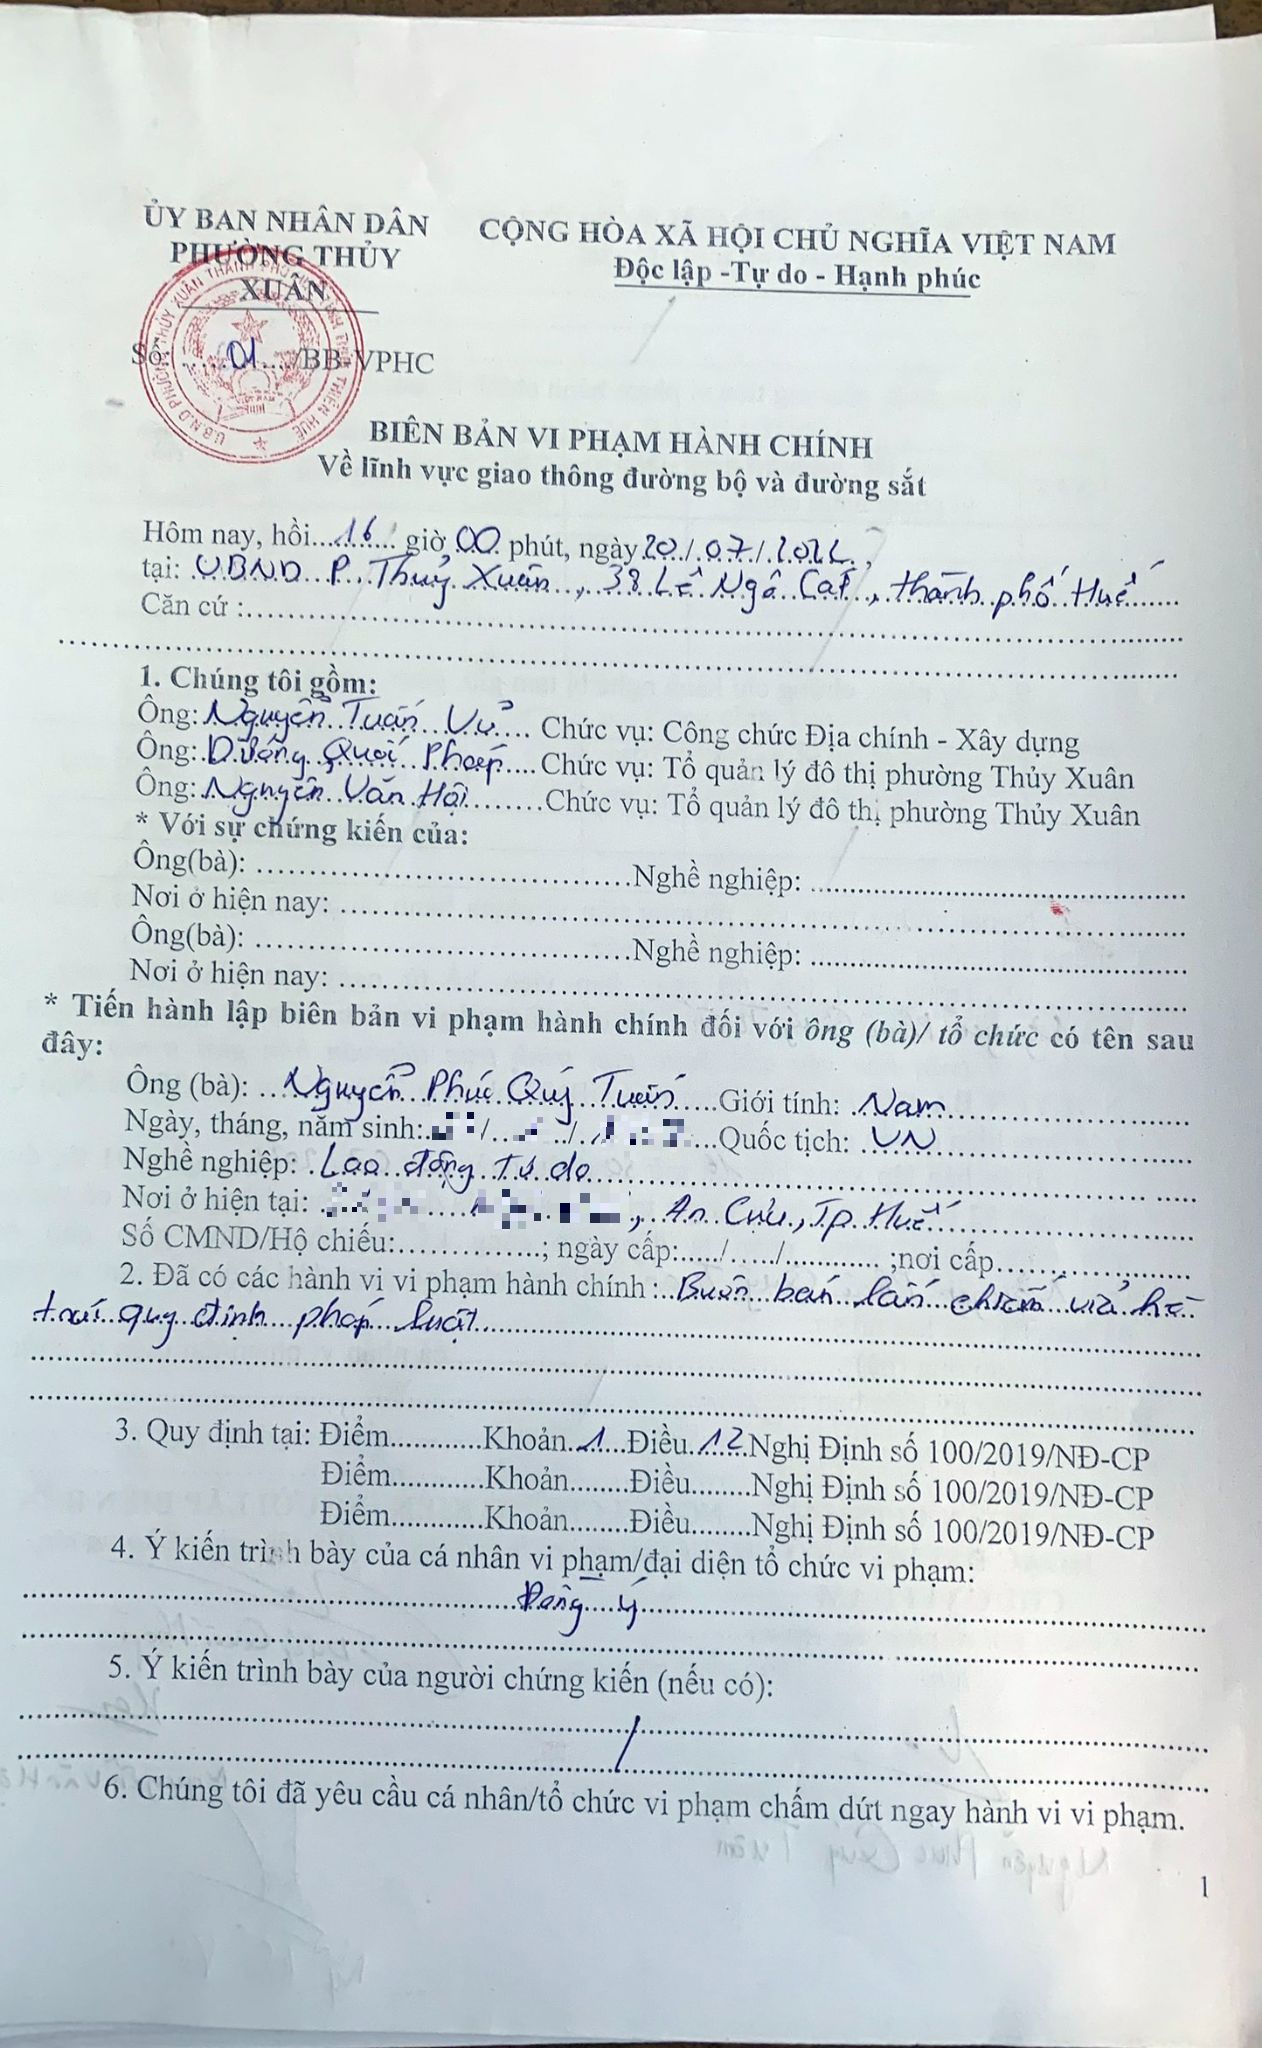 ỦY BAN NHÂN DÂN
PHƯỜNG THỦY
XUÂN
CỘNG HÒA XÃ HỘI CHỦ NGHĨA VIỆT NAM
Độc lập -Tự do - Hạnh phúc
Số: ......01...../BB-VPHC
BIÊN BẢN VI PHẠM HÀNH CHÍNH
Về lĩnh vực giao thông đường bộ và đường sắt
Hôm nay, hồi...16...... giờ 00 phút, ngày 20./.07./.2022.,
tại: UBND P. Thuỷ Xuân, 38 Lê Ngô Cát, thành phố Huế
Căn cứ :
1. Chúng tôi gồm:
Ông: Nguyễn Tuấn Vũ Chức vụ: Công chức Địa chính - Xây dựng
Ông: Dương Quốc Pháp Chức vụ: Tổ quản lý đô thị phường Thủy Xuân
Ông: Nguyễn Văn Hội Chức vụ: Tổ quản lý đô thị phường Thủy Xuân
* Với sự chứng kiến của:
Ông(bà): Nghề nghiệp:
Nơi ở hiện nay:
Ông(bà): Nghề nghiệp:
Nơi ở hiện nay:
* Tiến hành lập biên bản vi phạm hành chính đối với ông (bà)/ tổ chức có tên sau
đây:
Ông (bà): Nguyễn Phúc Quý Tuấn Giới tính: Nam
Ngày, tháng, năm sinh: Quốc tịch: VN
Nghề nghiệp: Lao động tự do
Nơi ở hiện tại: , An Cựu, Tp Huế
Số CMND/Hộ chiếu:...............; ngày cấp:...../...../............ ;nơi cấp
2. Đã có các hành vi vi phạm hành chính : Buôn bán lấn chiếm vỉa hè
trái quy định pháp luật
3. Quy định tại: Điểm............Khoản..1...Điều..12.Nghị Định số 100/2019/NĐ-CP
Điểm............Khoản........Điều........Nghị Định số 100/2019/NĐ-CP
Điểm............Khoản........Điều........Nghị Định số 100/2019/NĐ-CP
4. Ý kiến trình bày của cá nhân vi phạm/đại diện tổ chức vi phạm:
Đồng ý
5. Ý kiến trình bày của người chứng kiến (nếu có):
/
6. Chúng tôi đã yêu cầu cá nhân/tổ chức vi phạm chấm dứt ngay hành vi vi phạm.
1